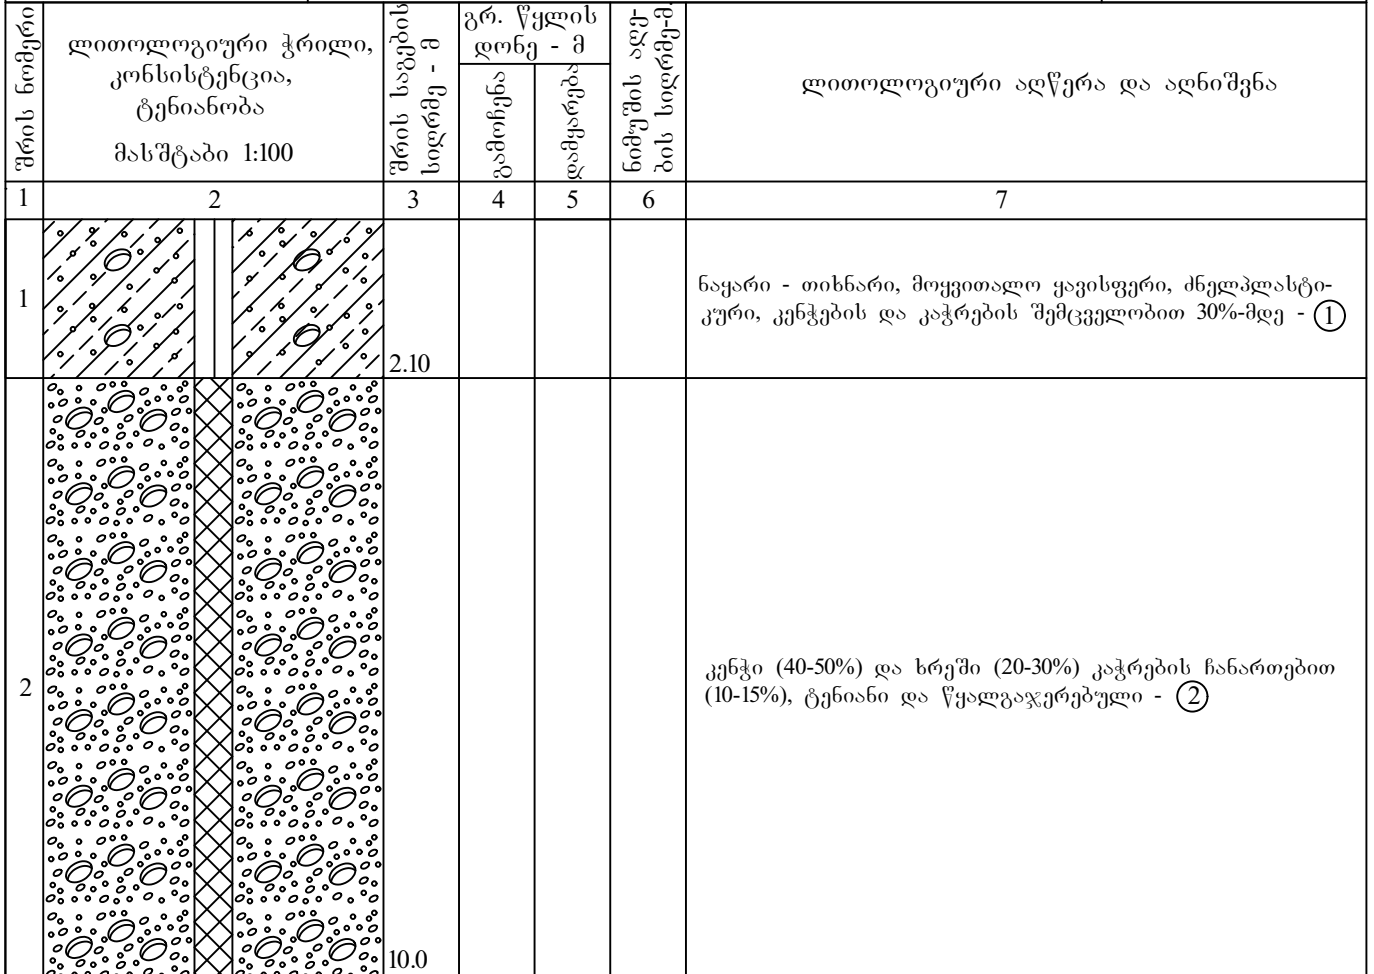 შრის ნომერი
ლითოლოგიური ჭრილი,
კონსისტენცია,
ტენიანობა
მასშტაბი 1:100
შრის საგების
სიღრმე - მ
გრ. წყლის
დონე - მ
გამოჩენა
დამყარება
ნიმუშის აღე-
ბის სიღრმე-მ.
ლითოლოგიური აღწერა და აღნიშვნა
1 2 3 4 5 6 7
1
2.10
ნაყარი - თიხნარი, მოყვითალო ყავისფერი, ძნელპლასტი-
კური, კენჭების და კაჭრების შემცველობით 30%-მდე - 1
2
10.0
კენჭი (40-50%) და ხრეში (20-30%) კაჭრების ჩანართებით
(10-15%), ტენიანი და წყალგაჯერებული - 2